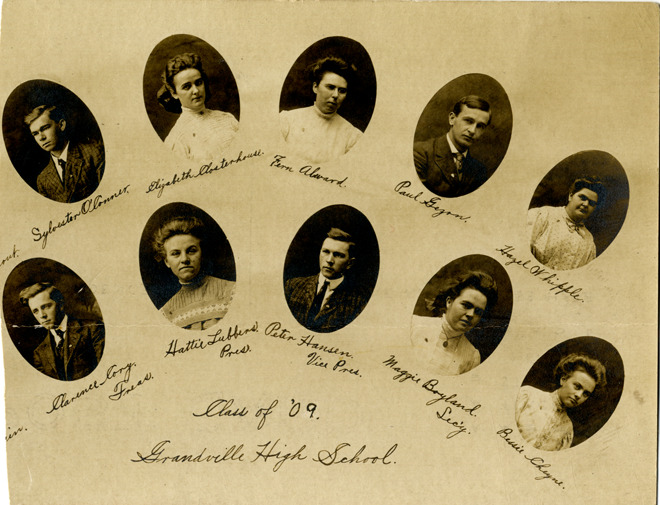 Sylvester O'Conner.
Elizabeth Oosterhouse.
Fern Alward.
Paul Gezon.
Hazel Whipple.
ont.
Clarence Cory.
Treas.
Hattie Lubbers.
Pres.
Peter Hansen.
Vice Pres.
Maggie Boyland.
Sec'y.
Bessie Cheyne.
in.
Class of '09.
Grandville High School.